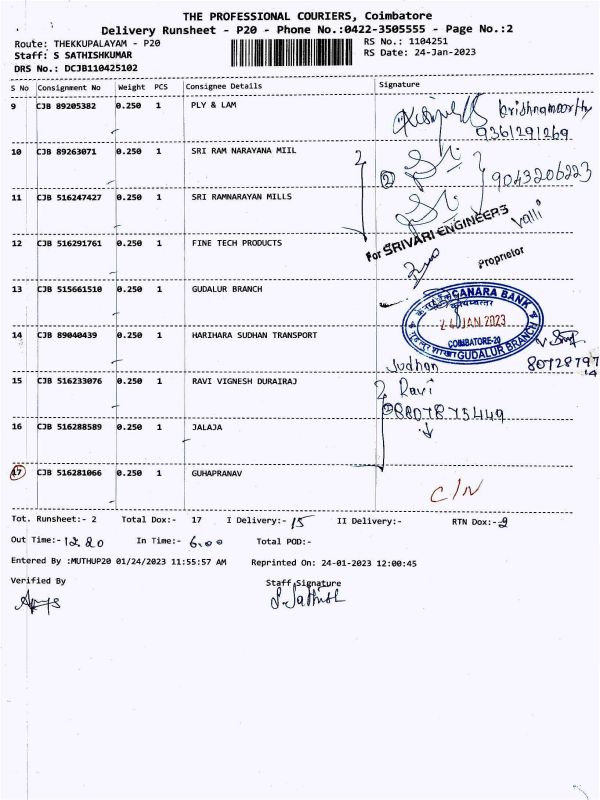 THE PROFESSIONAL COURIERS, Coimbatore
Delivery Runsheet - P20 - Phone No.:0422-3505555 - Page No.:2
Route: THEKKUPALAYAM - P20
RS No.: 1104251
Staff: S SATHISHKUMAR
RS Date: 24-Jan-2023
DRS No.: DCJB110425102
S No Consignment No Weight PCS Consignee Details Signature
9 CJB 89205382 0.250 1 PLY & LAM
krishnamoorthy
9361291269
10 CJB 89263071 0.250 1 SRI RAM NARAYANA MIIL
2 9043206223
11 CJB 516247427 0.250 1 SRI RAMNARAYAN MILLS
Valli
For SRIVARI ENGINEERS
12 CJB 516291761 0.250 1 FINE TECH PRODUCTS
Proprietor
13 CJB 515661510 0.250 1 GUDALUR BRANCH
CANARA BANK
24 JAN 2023
COIMBATORE-20
GUDALUR BRANCH
14 CJB 89040439 0.250 1 HARIHARA SUDHAN TRANSPORT
Sudhan 80728797
15 CJB 516233076 0.250 1 RAVI VIGNESH DURAIRAJ
Ravi
8807875449
16 CJB 516288589 0.250 1 JALAJA
17 CJB 516281066 0.250 1 GUHAPRANAV
C/N
Tot. Runsheet:- 2 Total Dox:- 17 I Delivery:- 15 II Delivery:- RTN Dox:- 2
Out Time:- 12.20 In Time:- 6.00 Total POD:-
Entered By :MUTHUP20 01/24/2023 11:55:57 AM Reprinted On: 24-01-2023 12:00:45
Verified By Staff Signature
S. Sathish